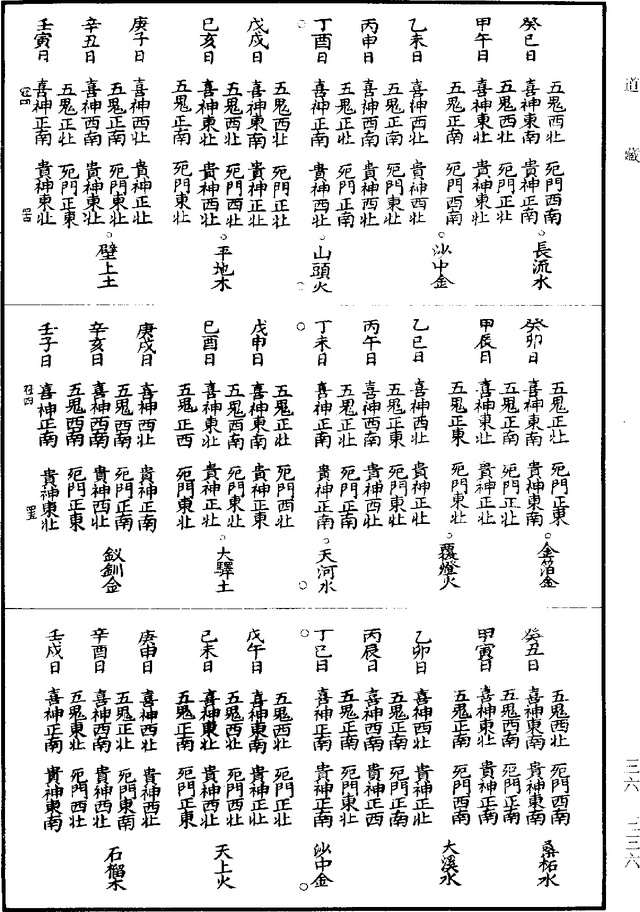 道藏
五鬼西北 死門西南
癸巳日 喜神東南 貴神正南
長流水
五鬼西北 死門西北
甲午日 喜神東北 貴神東北
五鬼正南 死門西南
沙中金
乙未日 喜神西北 貴神西北
五鬼東南 死門東北
丙申日 喜神西南 貴神西北
五鬼正北 死門正南
丁酉日 喜神正南 貴神西北
山頭火
五鬼西北 死門正北
戊戌日 喜神東南 貴神正北
五鬼西北 死門西北
己亥日 喜神東北 貴神西北
平地木
五鬼正南 死門東北
庚子日 喜神西北 貴神正北
五鬼正南 死門東北
壁上土
辛丑日 喜神西南 貴神東北
五鬼正北 死門正東
壬寅日 喜神正南 貴神東北
五鬼正北 死門正東
癸卯日 喜神東南 貴神東南
金箔金
五鬼正南 死門正北
甲辰日 喜神東北 貴神正北
五鬼正東 死門東北
覆燈火
乙巳日 喜神西北 貴神正北
五鬼正東 死門東北
丙午日 喜神西南 貴神西北
五鬼正北 死門正南
丁未日 喜神正南 貴神正南
天河水
五鬼正北 死門西北
戊申日 喜神東南 貴神正東
五鬼西南 死門東北
己酉日 喜神東北 貴神正北
大驛土
五鬼正西 死門東北
庚戌日 喜神西北 貴神正南
五鬼西南 死門正南
釵釧金
辛亥日 喜神西南 貴神西北
五鬼西南 死門正東
壬子日 喜神正南 貴神東北
五鬼西北 死門西南
癸丑日 喜神東南 貴神東南
桑柘水
五鬼西南 死門正南
甲寅日 喜神東北 貴神正南
五鬼正南 死門西南
大溪水
乙卯日 喜神西北 貴神正北
五鬼正南 死門正南
丙辰日 喜神西南 貴神正西
五鬼正南 死門東北
丁巳日 喜神正南 貴神正南
沙中金
五鬼西北 死門正北
戊午日 喜神東南 貴神正北
五鬼西北 死門西北
己未日 喜神東北 貴神西北
天上火
五鬼正南 死門正東
庚申日 喜神西北 貴神西北
五鬼正北 死門東南
石榴木
辛酉日 喜神西南 貴神西北
五鬼東北 死門西北
壬戌日 喜神正南 貴神東南
三六
二三六